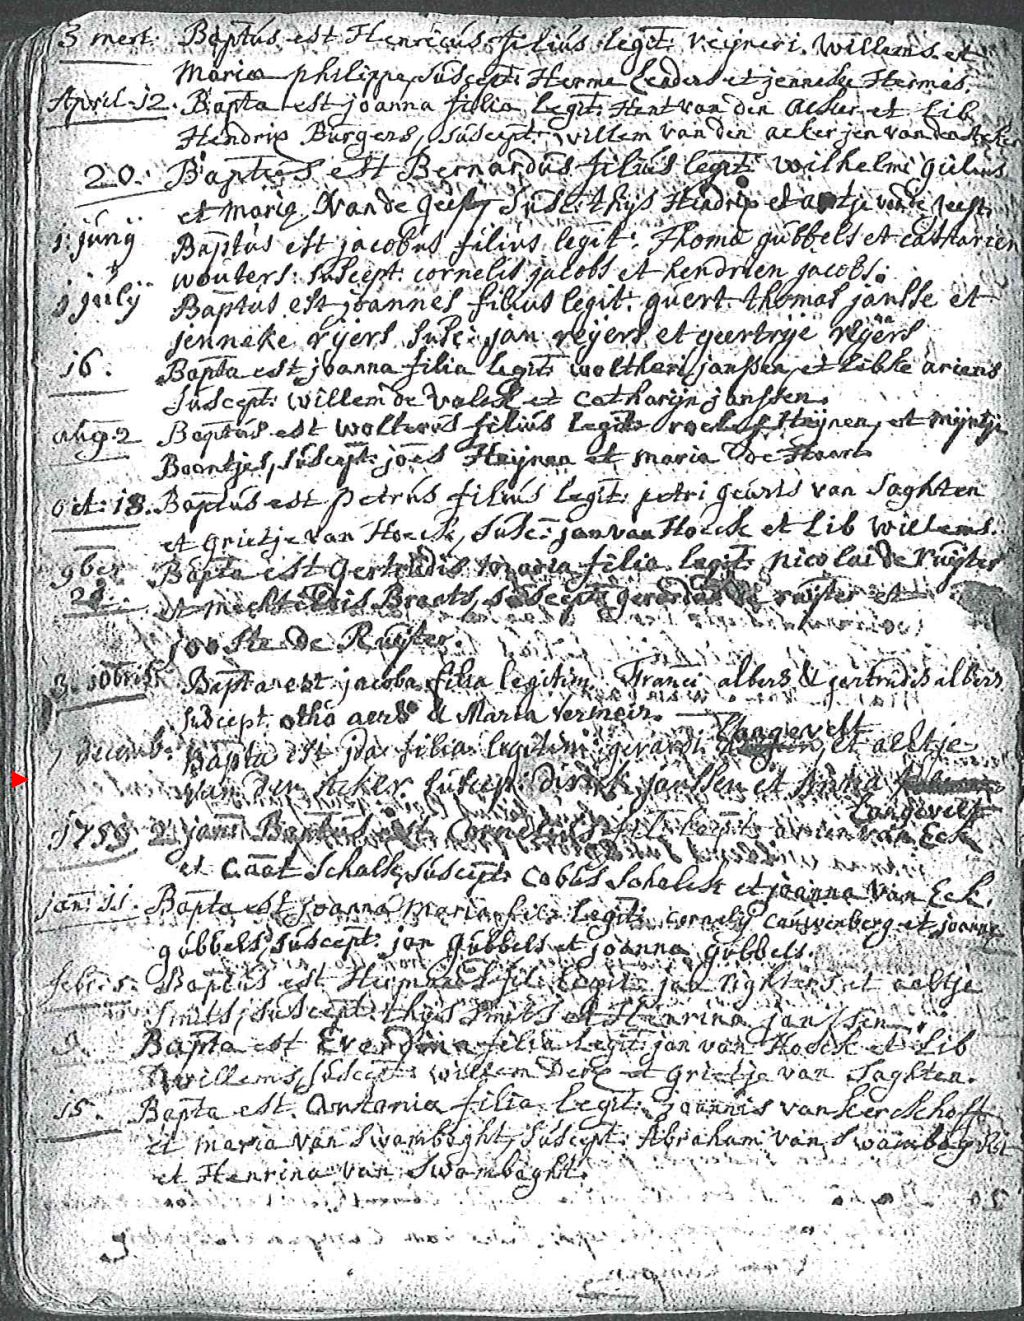 3 mert. Baptus est Henricus filius legit: reijneri Willems et
Maria philippe, suscept: Herme Leenders et jenneke Hermes.
April. 12. Bapta est joanna filia legit: Hent van den acker et Lib
Hendrix Burgens, suscept: willem van den acker jen van den Acker
20. Baptus est Bernardus filius legit: wilhelmi
et Maria van de geest, susc: thijs Hendrix et antje van de geest
1 junij Baptus est jacobus filius legit: Thoma gubbels et catharien
wouters: suscept: cornelis jacobs et hendrien jacobs.
julij Baptus est joannes filius legit. guert thomas jansse et
jenneke reijers susc: jan reijers et geertrije reijers
16. Bapta est joanna filia legit: woltheri janssen et Libke ariens
suscept: willem de valck et catharijn janssen.
aug. 2 Baptus est wolterus filius legit: roelof Heijnen, et mijntje
Boontjes, suscept: joes Heijnen et maria de Haart
oct: 18. Baptus est petrus filius legit: petri geurts van Saghten
et grietje van Hoeck, susc: jan van Hoeck et Lib willems.
9ber Bapta est Gertrudis maria filia legit: nicolai de ruijter
21. et mechtildis Braats, suscept: gerardus de ruijter et
jooste de Ruijter.
3. xobris Bapta est jacoba filia legitim Franci albers & gertrudis albers
suscept. otho aers & Maria Vermeir.
7 decemb: Bapta est jda filia legitim: gerardi Langevelt et aeltje
van den Acker. suscept: dirick janssen et Anna
Langevelt
1759 2 jan: Baptus est Cornelius fil: legit: arien van Eck
et Caat Schalk, suscept: Cobus Schalck et joanna van Eck.
jan: 11. Bapta est joanna Maria filia legit: cornelij cauwenberg et joanna
gubbels, suscept: jan gubbels et joanna gubbels.
feber 5. Baptus est Hermanus fil: legit: jan righters et aeltje
smits, suscept: thijs smits et Henrina janssen.
9. Bapta est Everdina filia legit: jan van Hoeck et Lib
willems, suscept: willem Derx et grietje van Saghten.
15. Bapta est Antonia filia legit: joannis van kerckhoff
et maria van Swambaght, suscept: Abraham van Swambaght
et Henrina van Swambaght.